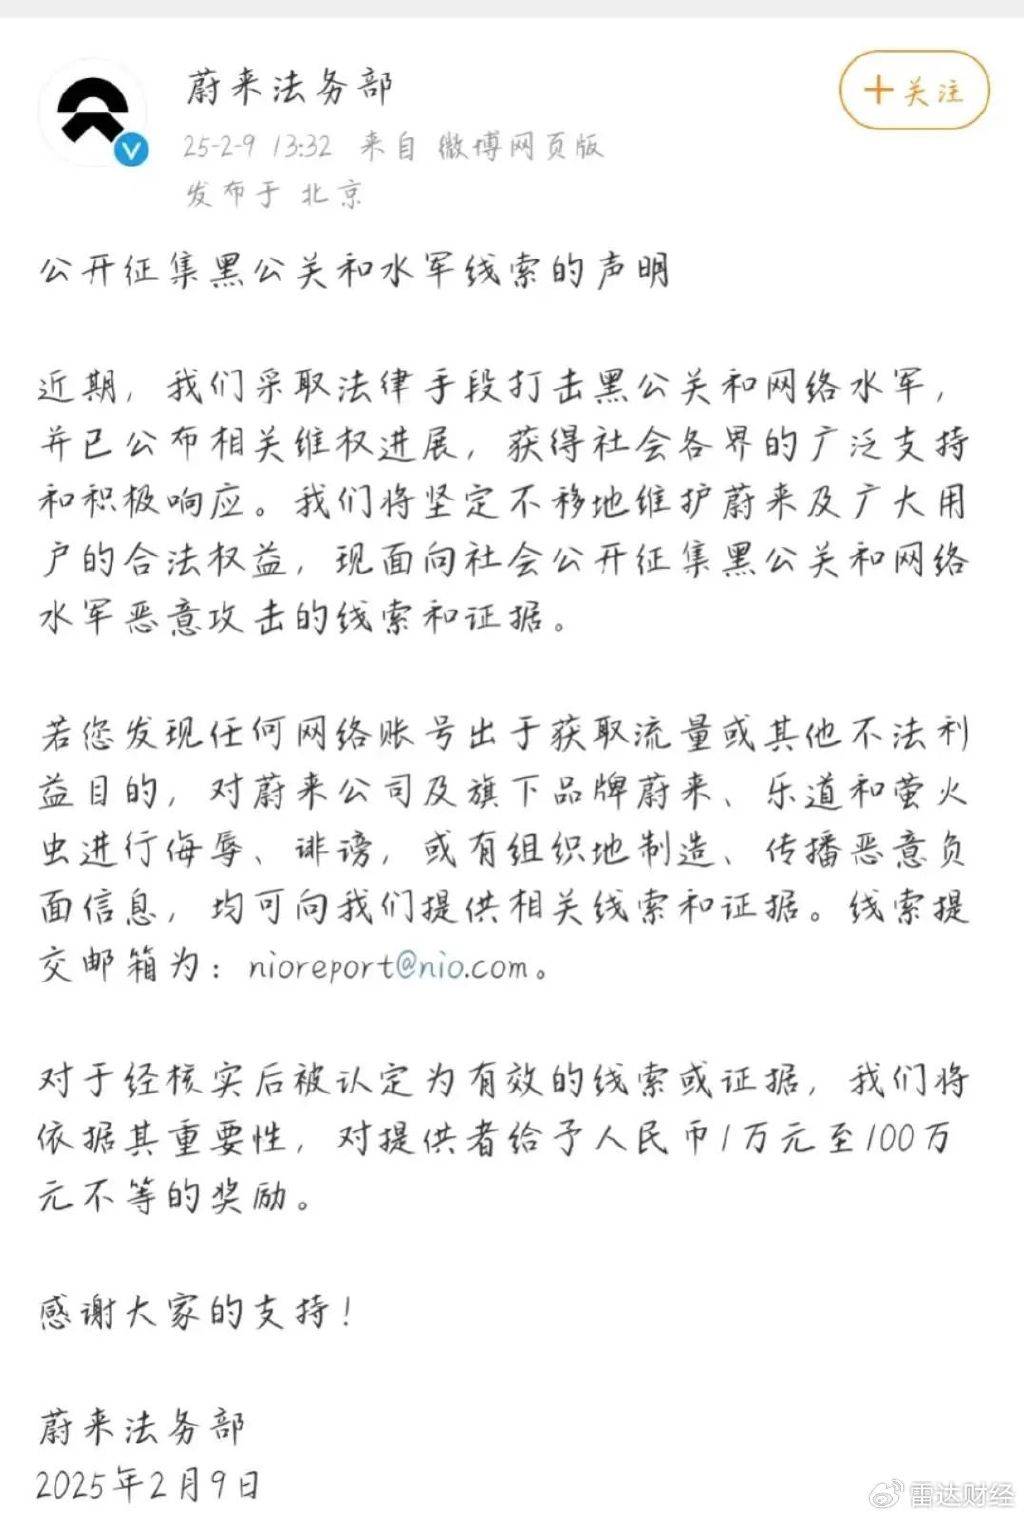 蔚来法务部
+关注
25-2-9 13:32 来自 微博网页版
发布于 北京
公开征集黑公关和水军线索的声明
近期，我们采取法律手段打击黑公关和网络水军，
并已公布相关维权进展，获得社会各界的广泛支持
和积极响应。我们将坚定不移地维护蔚来及广大用
户的合法权益，现面向社会公开征集黑公关和网络
水军恶意攻击的线索和证据。
若您发现任何网络账号出于获取流量或其他不法利
益目的，对蔚来公司及旗下品牌蔚来、乐道和萤火
虫进行侮辱、诽谤，或有组织地制造、传播恶意负
面信息，均可向我们提供相关线索和证据。线索提
交邮箱为：nioreport@nio.com。
对于经核实后被认定为有效的线索或证据，我们将
依据其重要性，对提供者给予人民币1万元至100万
元不等的奖励。
感谢大家的支持！
蔚来法务部
2025年2月9日
雷达财经